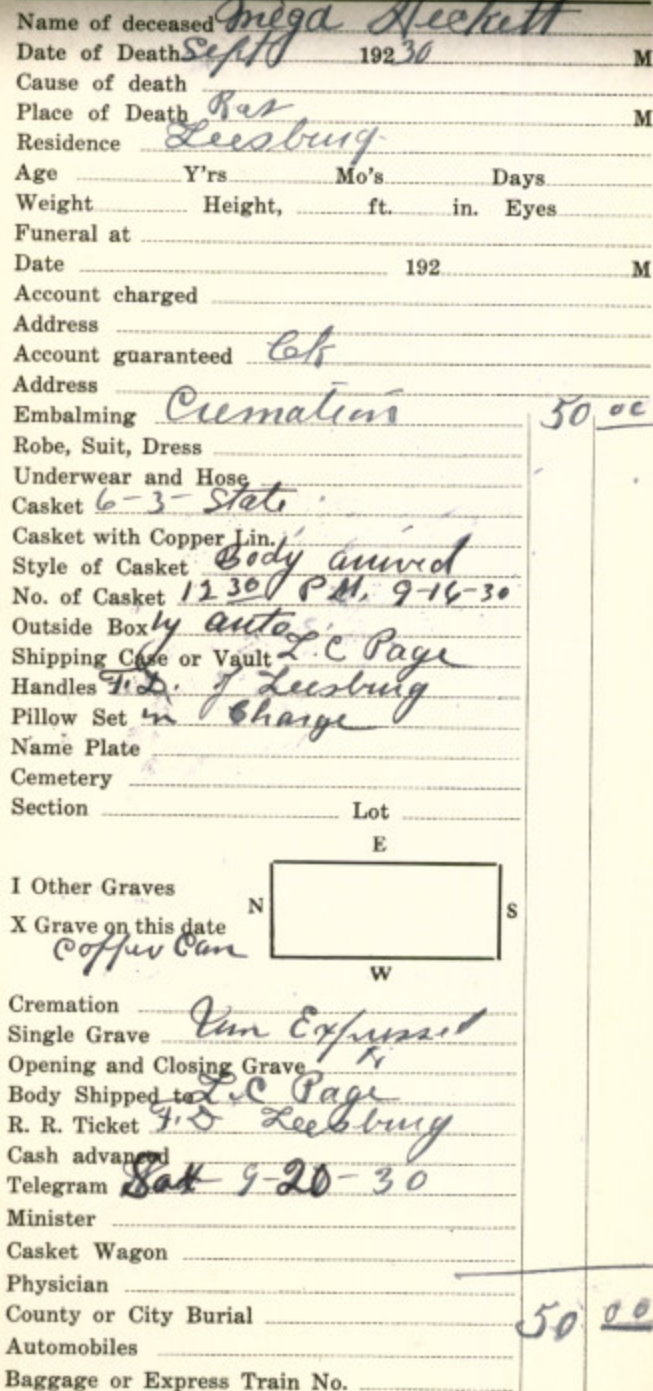 Name of deceased Mega Heckett
Date of Death Sept 192 30 M
Cause of death
Place of Death Res M
Residence Leesburg
Age Y'rs Mo's Days
Weight Height, ft. in. Eyes
Funeral at
Date 192 M
Account charged
Address
Account guaranteed Ck
Address
Embalming Cremation 50 00
Robe, Suit, Dress
Underwear and Hose
Casket 6-3- State
Casket with Copper Lin.
Style of Casket Body arrived
No. of Casket 12 30 P.M. 9-16-30
Outside Box by auto
Shipping Case or Vault L. C Page
Handles F.D. of Leesburg
Pillow Set in Charge
Name Plate
Cemetery
Section Lot
E
I Other Graves
N S
X Grave on this date
Copper Can
W
Cremation
Single Grave Urn Expressed
Opening and Closing Grave
Body Shipped to L.C Page
R. R. Ticket F.D Leesburg
Cash advanced
Telegram Sat 9-20-30
Minister
Casket Wagon
Physician
County or City Burial 50 00
Automobiles
Baggage or Express Train No.